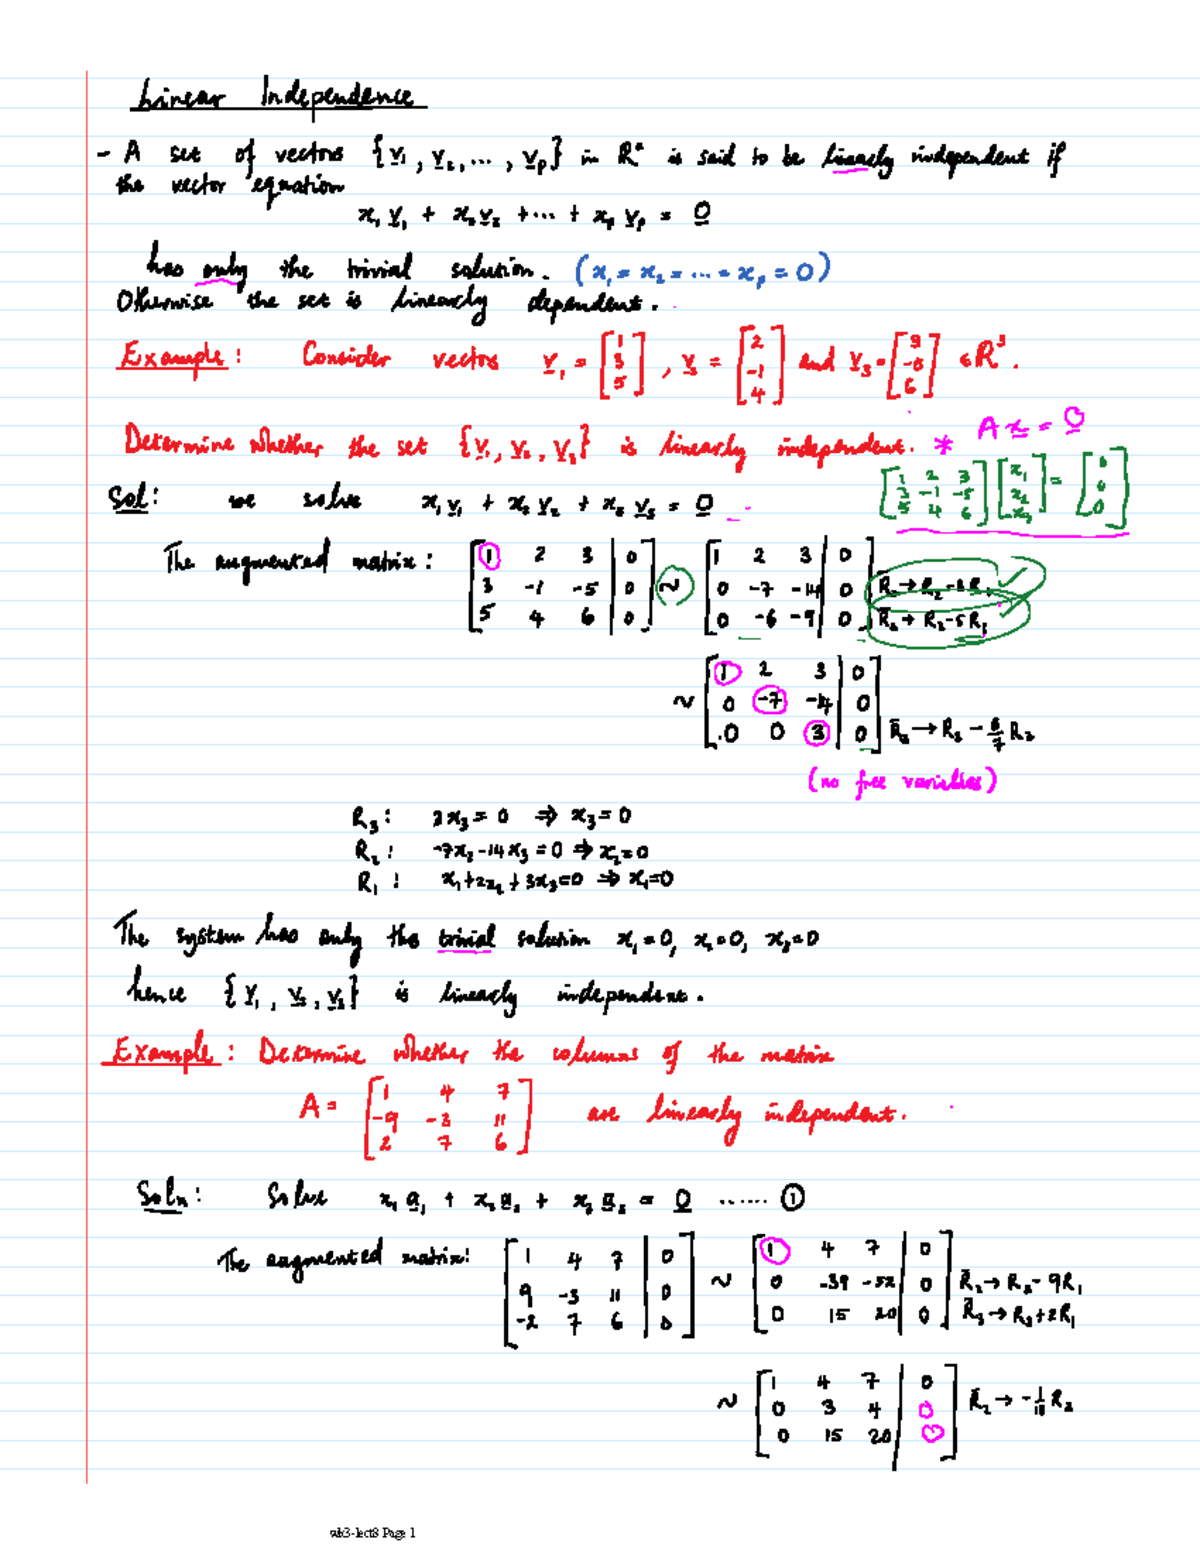 Linear Independence
- A set of vectors {v₁, v₂, ... , vp} in Rⁿ is said to be linearly independent if
the vector equation
x₁v₁ + x₂v₂ + ... + xp vp = 0
has only the trivial solution. (x₁ = x₂ = ... = xp = 0)
Otherwise the set is linearly dependent.
Example: Consider vectors v₁ = [1 3 5], v₂ = [2 -1 4] and v₃ = [3 -5 6] ∈ R³.
Determine whether the set {v₁, v₂, v₃} is linearly independent. * Ax = 0
[1 2 3; 3 -1 -5; 5 4 6] [x₁ x₂ x₃] = [0 0 0]
Sol: we solve x₁v₁ + x₂v₂ + x₃v₃ = 0
The augmented matrix:
[1 2 3 | 0] ~ [1 2 3 | 0]
[3 -1 -5 | 0] [0 -7 -14 | 0] R₂ → R₂ - 3R₁
[5 4 6 | 0] [0 -6 -9 | 0] R₃ → R₃ - 5R₁
~ [1 2 3 | 0]
[0 -7 -14 | 0]
[0 0 3 | 0] R₃ → R₃ - 6/7 R₂
(no free variables)
R₃: 3x₃ = 0 ⇒ x₃ = 0
R₂: -7x₂ - 14x₃ = 0 ⇒ x₂ = 0
R₁: x₁ + 2x₂ + 3x₃ = 0 ⇒ x₁ = 0
The system has only the trivial solution x₁ = 0, x₂ = 0, x₃ = 0
hence {v₁, v₂, v₃} is linearly independent.
Example: Determine whether the columns of the matrix
A = [1 4 7; -9 -3 11; 2 7 6] are linearly independent.
Soln: Solve x₁a₁ + x₂a₂ + x₃a₃ = 0 ...... ①
The augmented matrix:
[1 4 7 | 0] ~ [1 4 7 | 0]
[9 -3 11 | 0] [0 -39 -52 | 0] R₂ → R₂ - 9R₁
[-2 7 6 | 0] [0 15 20 | 0] R₃ → R₃ + 2R₁
~ [1 4 7 | 0]
[0 3 4 | 0] R₂ → -1/13 R₂
[0 15 20 | 0]
wk3-lect8 Page 1